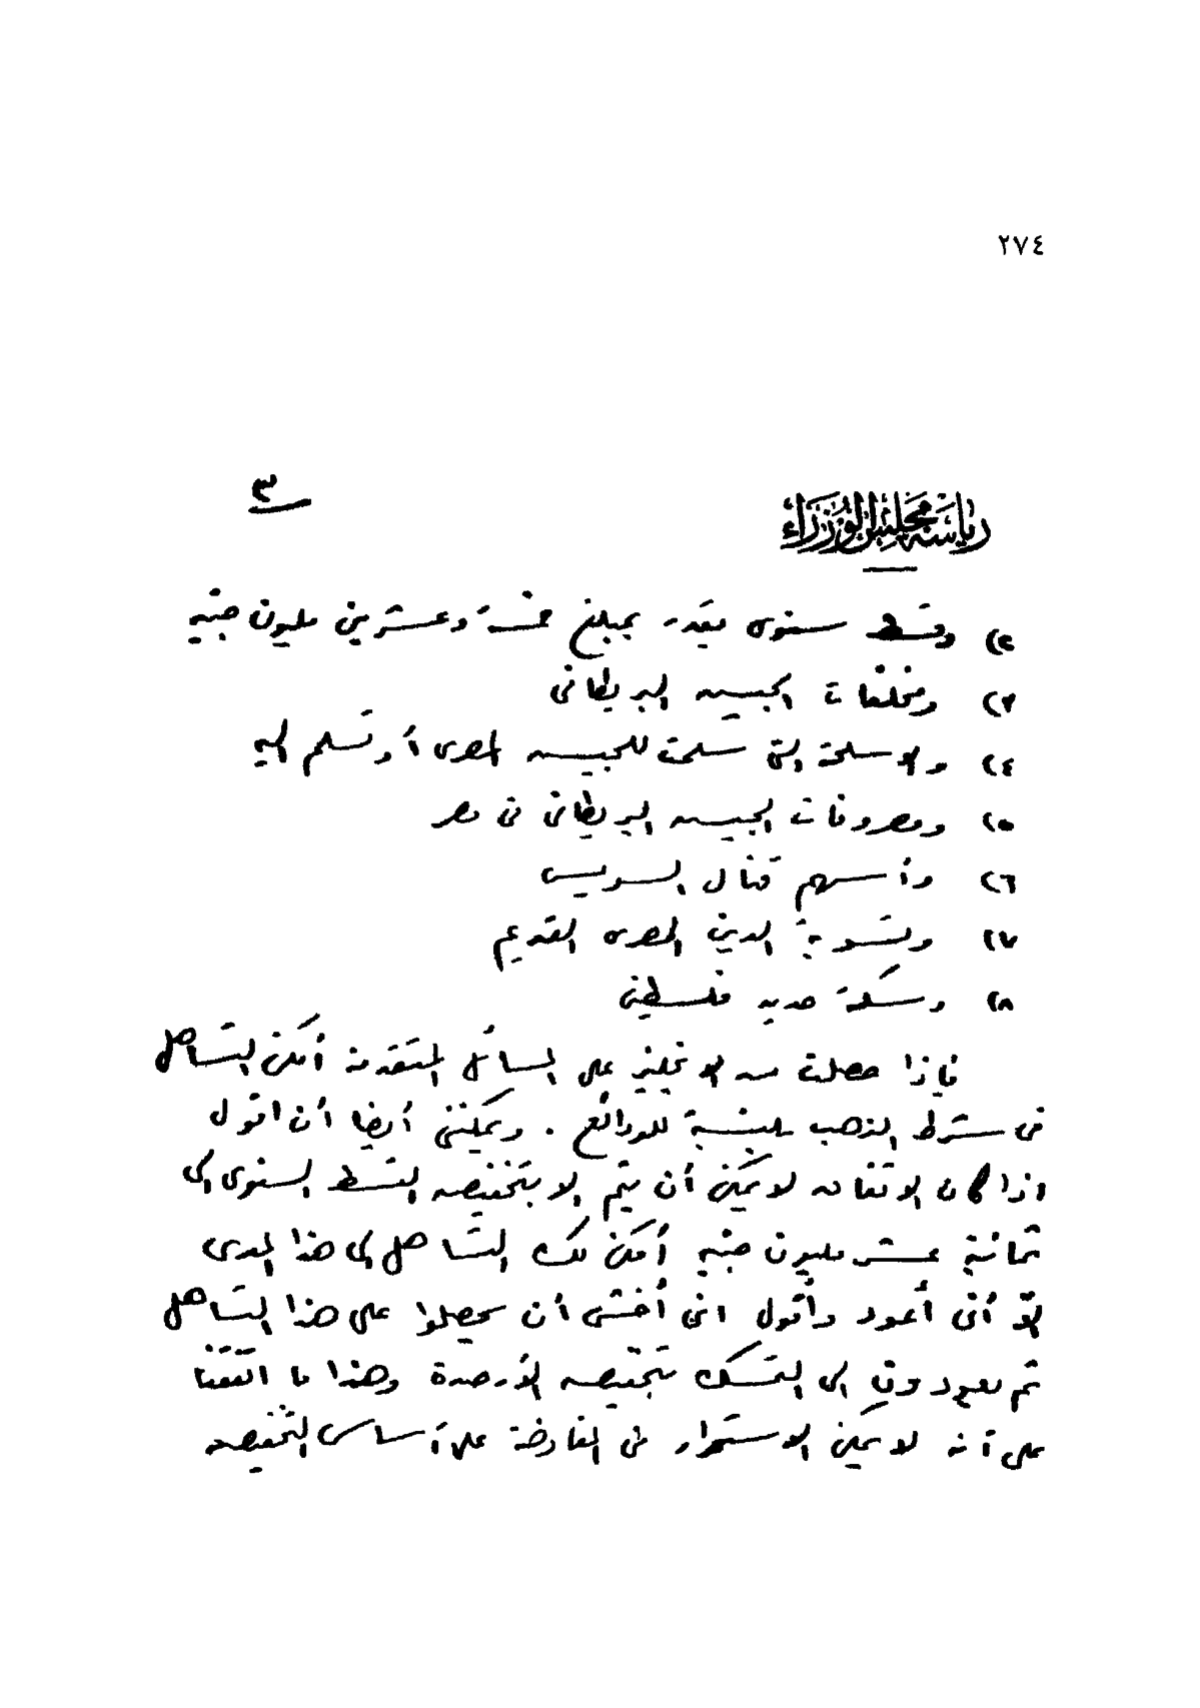 ٢٧٤
٣
رياسة مجلس الوزراء
٢) وقسط سنوى يقدر بمبلغ خمسة وعشرين مليون جنيه
٣) ومخلفات الجيش البريطانى
٤) والاسلحة التى سلمت للجيش المصرى أو تسلم اليه
٥) ومصروفات الجيش البريطانى فى مصر
٦) وأسهم قنال السويس
٧) وتسوية الدين المصرى القديم
٨) وسكة حديد فلسطين
فإذا حصلت من الانجليز على المسائل المتقدمة أمكن التساهل
فى شرط الذهب بالنسبة للودائع . ويمكننى أيضا أن اقول
اذا كان الاتفاق لا يمكن أن يتم الا بتخفيض القسط السنوى الى
ثمانية عشر مليون جنيه أمكن لك التساهل الى هذا المدى
الا أنى أعود وأقول انى أخشى أن يحصلوا على هذا التساهل
ثم يعودون الى التمسك بتخفيض الأرصدة وهذا ما اتفقنا
على أنه لا يمكن الاستمرار فى المفاوضة على أساس التخفيض